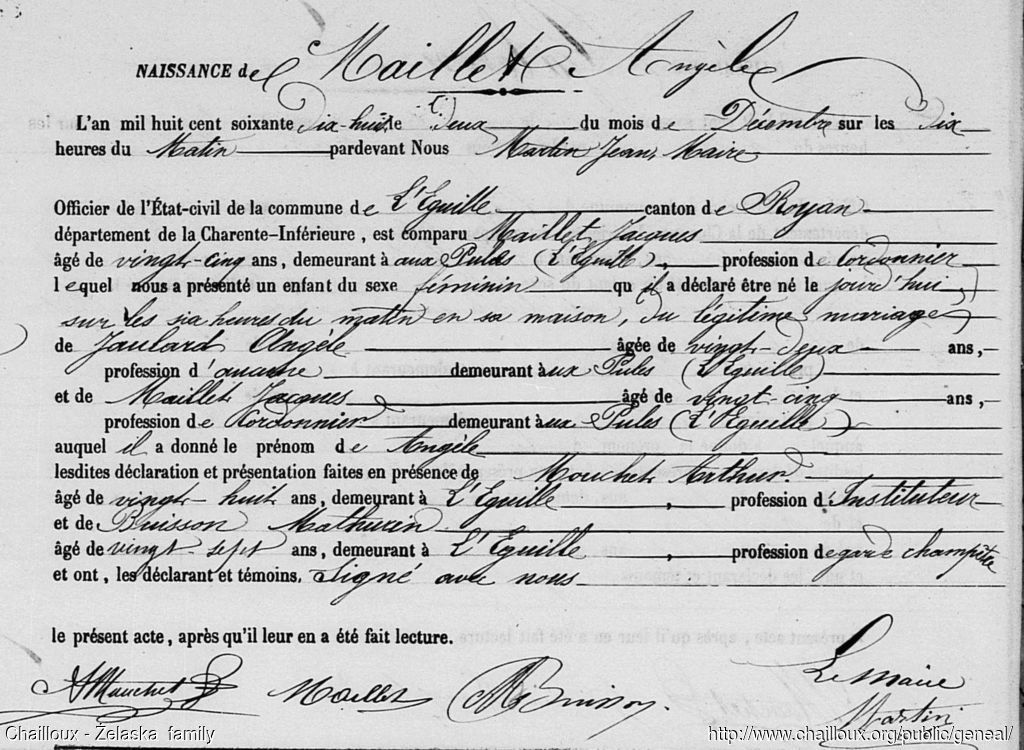 NAISSANCE de Maillet Angèle
L'an mil huit cent soixante dix-huit, le deux du mois de Décembre sur les dix
heures du Matin pardevant Nous Martin Jean, Maire
Officier de l'État-civil de la commune de L'Eguille canton de Royan
département de la Charente-Inférieure, est comparu Maillet Jacques
âgé de vingt-cinq ans, demeurant à aux Pules (L'Eguille), profession de Cordonnier
lequel nous a présenté un enfant du sexe féminin qu'il a déclaré être né le jourd'hui
sur les six heures du matin en sa maison, du légitime mariage
de Jaulard Angèle âgée de vingt-deux ans,
profession d'aucune demeurant aux Pules (L'Eguille)
et de Maillet Jacques âgé de vingt-cinq ans,
profession de Cordonnier demeurant aux Pules (L'Eguille)
auquel il a donné le prénom de Angèle
lesdites déclaration et présentation faites en présence de Mouchet Arthur
âgé de vingt-huit ans, demeurant à L'Eguille, profession d'Instituteur
et de Buisson Mathurin
âgé de vingt-sept ans, demeurant à L'Eguille, profession de garde champêtre
et ont, les déclarant et témoins, signé avec nous
le présent acte, après qu'il leur en a été fait lecture.
AMouchet Maillet Buisson Le Maire
Martin
Chailloux - Żelaska family http://www.chailloux.org/public/geneal/